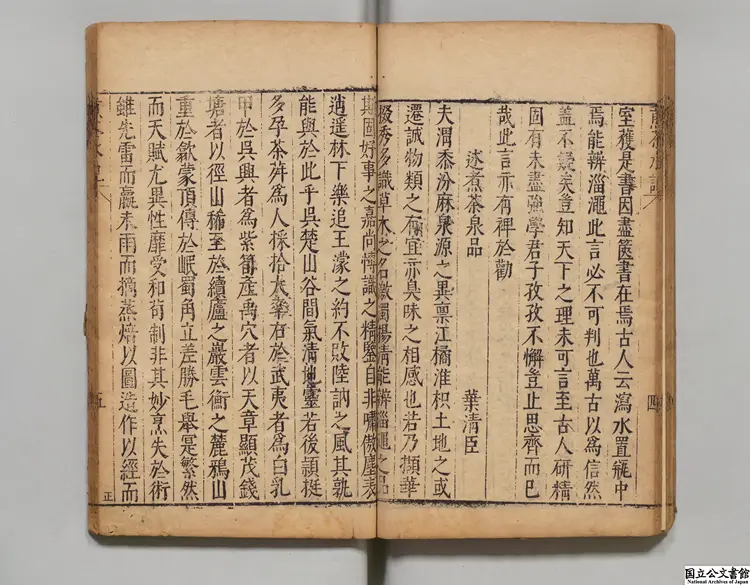 室穫是書因盡篋書在焉古人云瀉水置瓶中
焉能辨淄澠此言必不可判也萬古以爲信然
蓋不疑矣豈知天下之理未可言至古人研精
固有未盡強學君子孜孜不懈豈止思齊而已
哉此言亦有裨於勸
述煮茶泉品 葉清臣
夫渭黍汾麻泉源之異禀江橘淮枳土地之或
遷誠物類之有宜亦臭味之相感也若乃擷華
掇秀多識草木之名激濁揚清能辨淄澠之品
斯固好事之嘉尚博識之精鑒自非嘯傲塵表
逍遥林下樂追王濛之約不敗陸訥之風其孰
能與於此乎吳楚山谷間氣清地靈若後頴挺
多孕茶荈爲人採拾大率右於武夷者爲白乳
甲於吳興者爲紫筍產禹穴者以天章顯茂錢
塘者以徑山稀至於續廬之巖雲衡之麓鴉山
重於歙蒙頂傳於岷蜀角立差勝毛舉寔繁然
而天賦尤異性靡受和苟制非其妙烹失於術
雖先雷而嬴未雨而擷蒸焙以圖造作以經而
四
五
正
国立公文書館
National Archives of Japan